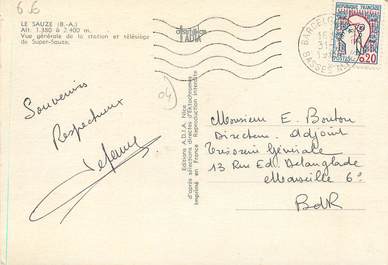 6 €
LE SAUZE (B.-A.)
Alt. 1.380 à 2.400 m.
Vue générale de la station et télésiège
de Super-Sauze.
Souvenirs
Respectueux
04
Editions A.D.I.A. Nice
d'après sélections directes d'Ektachromes
Imprimé en France Reproduction interdite
BARCELO
BASSES
0,20
Monsieur E. Bouton
Directeur adjoint
Trésorerie Générale
13 Rue Ed. Delanglade
Marseille 6e
BdR